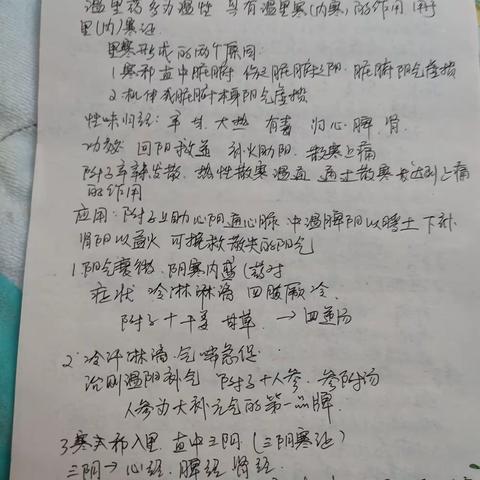 温里药多为温性 具有温里寒(内寒)的作用 用于
里(内)寒证
里寒形成的两个原因:
1 寒邪直中脏腑 伤了脏腑之阳. 脏腑阳气虚损
2. 机体或脏腑本身阳气虚损
性味归经: 辛 甘. 大热 有毒 归心. 脾. 肾.
功效: 回阳救逆 补火助阳. 散寒止痛
附子辛辣发散. 热性散寒温通 通过散寒 达到止痛
的作用
应用: 附子上助心阳通心脉 中温脾阳以暖土 下补
肾阳以益火 可挽救散失的阳气
1. 阳气衰微. 阴寒内盛 (药对
症状 冷淋淋漓 四肢厥冷.
附子十干姜 甘草. → 四逆汤
2. 冷汗淋漓. 气喘急促
治则温阳补气 附子十人参. 参附汤
人参为大补元气的第一品牌.
3. 寒邪入里. 直中三阴 (三阴寒证)
三阴 → 心经. 脾经 肾经.